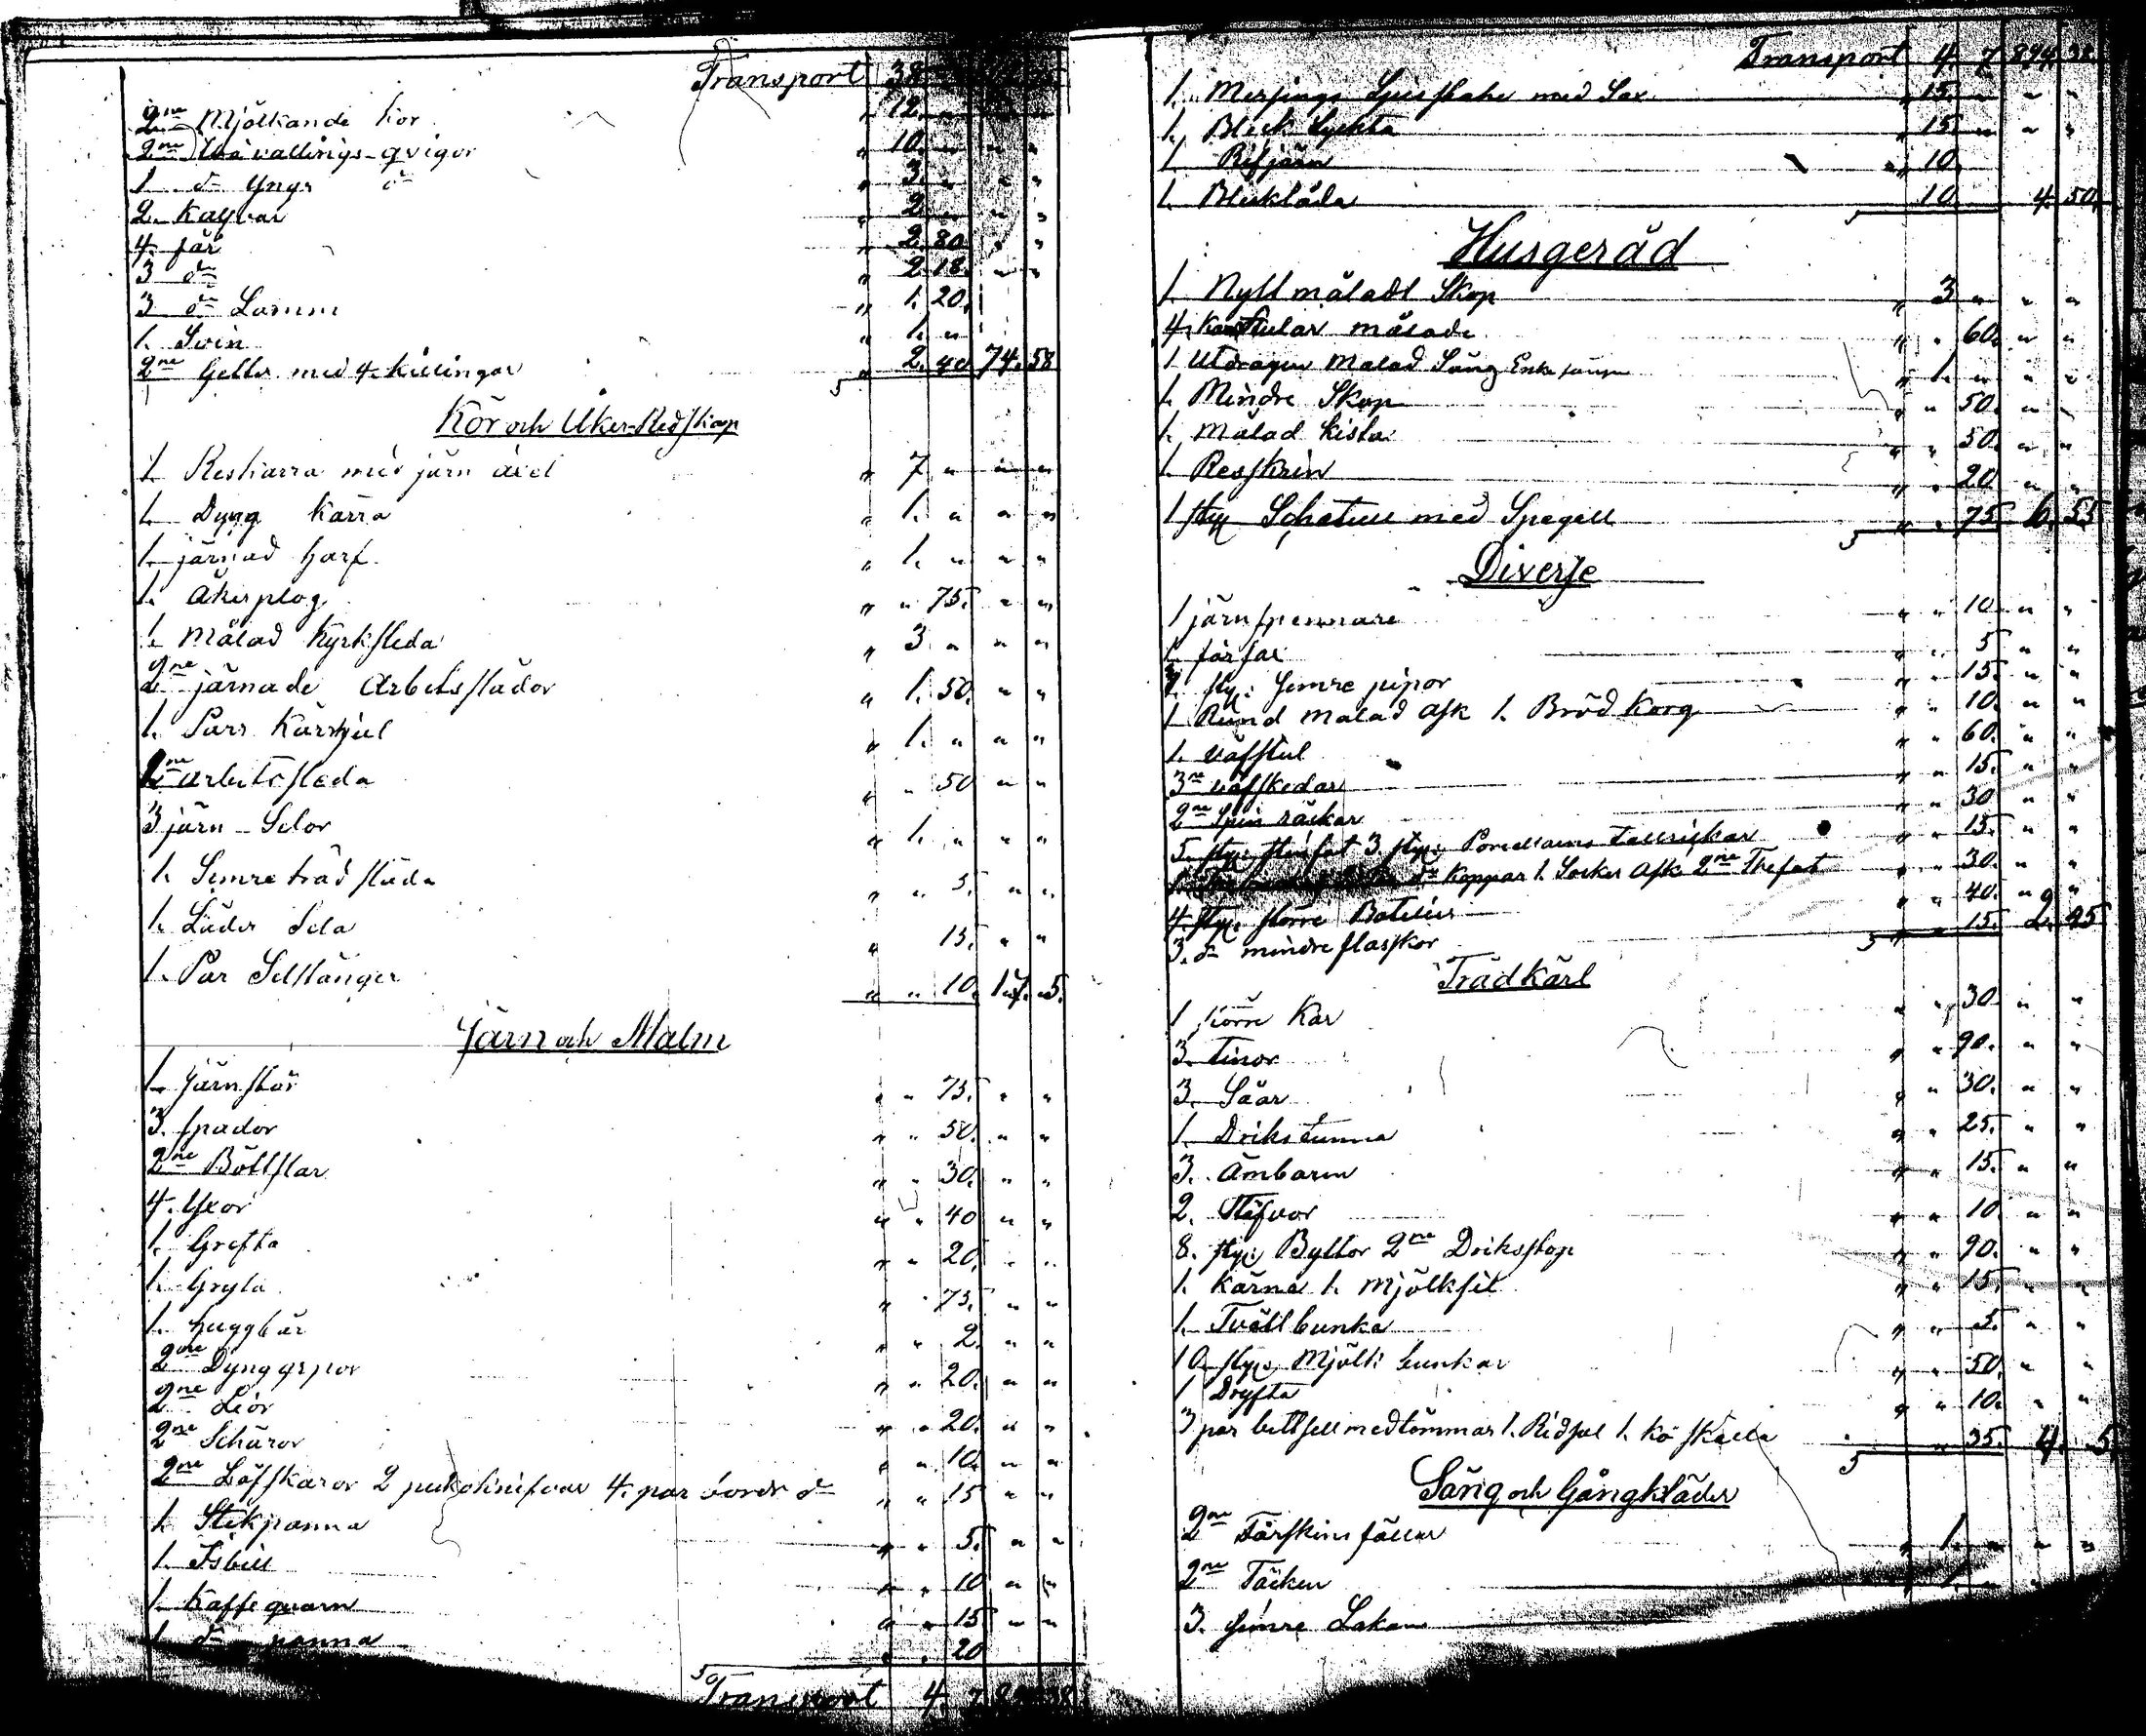 Transport 38
2ne Mjölkande kor " 12. " " "
2ne Två vallings-qvigor " 10. " " "
1 do Yngr do " 3. " " "
2. Kalfvar " 2 " " "
4. får " 2. 80 " "
3 do " 2. 18. " "
3 do Lamm " 1. 20.
1. Svin " 1. "
2ne Getter med 4. killingar " 2. 40 74. 58
Kör och Åker-Redskap
1. Reskärra med järn axel " 7 " " "
1. Dyng kärra " 1. " " "
1. järnad harf " 1. " " "
1. Åkerplog " " 75. " "
1. Målad Kyrksleda " 3 " " "
2ne järnade Arbetsslädor " 1. 50. " "
1. Pars Kärrhjul " 1. " " "
1 Arbetssleda " " 50 " "
3 järn-Selor " 1. " " "
1. Semre trädsläda " " 5. " "
1. Läder Sela " 15. " "
1. Par Selstänger " " 10. 17. 5.
Järn och Malm
1. Järnstör " " 75. " "
3. spador " " 50. " "
2ne Böttslar " " 30. " "
4. Yxor " " 40 " "
1. Grefta " " 20. " "
1. Gryta " " 75. " "
1. huggbär " " 2. " "
2ne Dynggrepor " " 20. " "
2ne Liör " " 20. " "
2ne Schäror " " 10. " "
2ne Löfskaror 2 4. par bords do " " 15 " "
1. Stekpanna " " 5. " "
1. Isbill " " 10 " "
1. Kaffe quarn " " 15 " "
1. do panna " " 20
Transport 4. 7. 894 38.
Transport 4. 7 894 38.
1. Messings Ljusstake med Sax " 15. " " "
1. Bleck Lyckta " 15 " " "
1. Rifjärn " 10
1. Blecklåda 10 4. 50.
Husgeråd
1. Nytt måladt Skop " 3 " " "
4. Karmstular målade " " 60. " "
1 Utdragen Målad Säng Enke säng " 1. " " "
1. Mindre Skop " " 50. " "
1. Målad Kista " " 50. " "
1. Resskrin " " 20 " "
1 sty Schatull med Spegell " " 75 6. 55
Diverse
1 järnspennare " " 10 " "
1. fårsax " " 5 " "
7. sty: Semre pipor " " 15. " "
1 Rund Målad ask 1. Bröd Korg " " 10. " "
1. väfstul " " 60. " "
3ne väfskedar " " 15. " "
2ne Spin räckar " " 30 " "
5. sty: stenfat 3. sty: Porcellains Tallrickar " " 15. " "
do Koppar 1. Socker Ask 2ne Thefat " " 30. " "
4. sty: större Bouteiller " " 40. " "
3. do mindre flasskor " " 15. 2. 95
Trädkärl
1 större Kar " " 30 " "
3. Tinor " " 90. " "
3. Såar " " 30. " "
1. Driks tunna " " 25. " "
3. Ämbaren " " 15. " "
2. Stäfvor " " 10 " "
8. sty: Byttor 2ne Driksstop " " 90. " "
1. Kärna 1. Mjölksil " " 15. " "
1. Tvättbunke " " 5. " "
10. sty: Mjölk bunkar " " 50. " "
1 Dryfta " " 10. " "
3 par bettsell med tömmar 1. Ridsal 1. Ko skälla " " 35. 4. 5
Säng och Gångkläder
2ne Fårskins fällar " 1. " " "
2ne Täcken " 1.
3. Semre Lakan